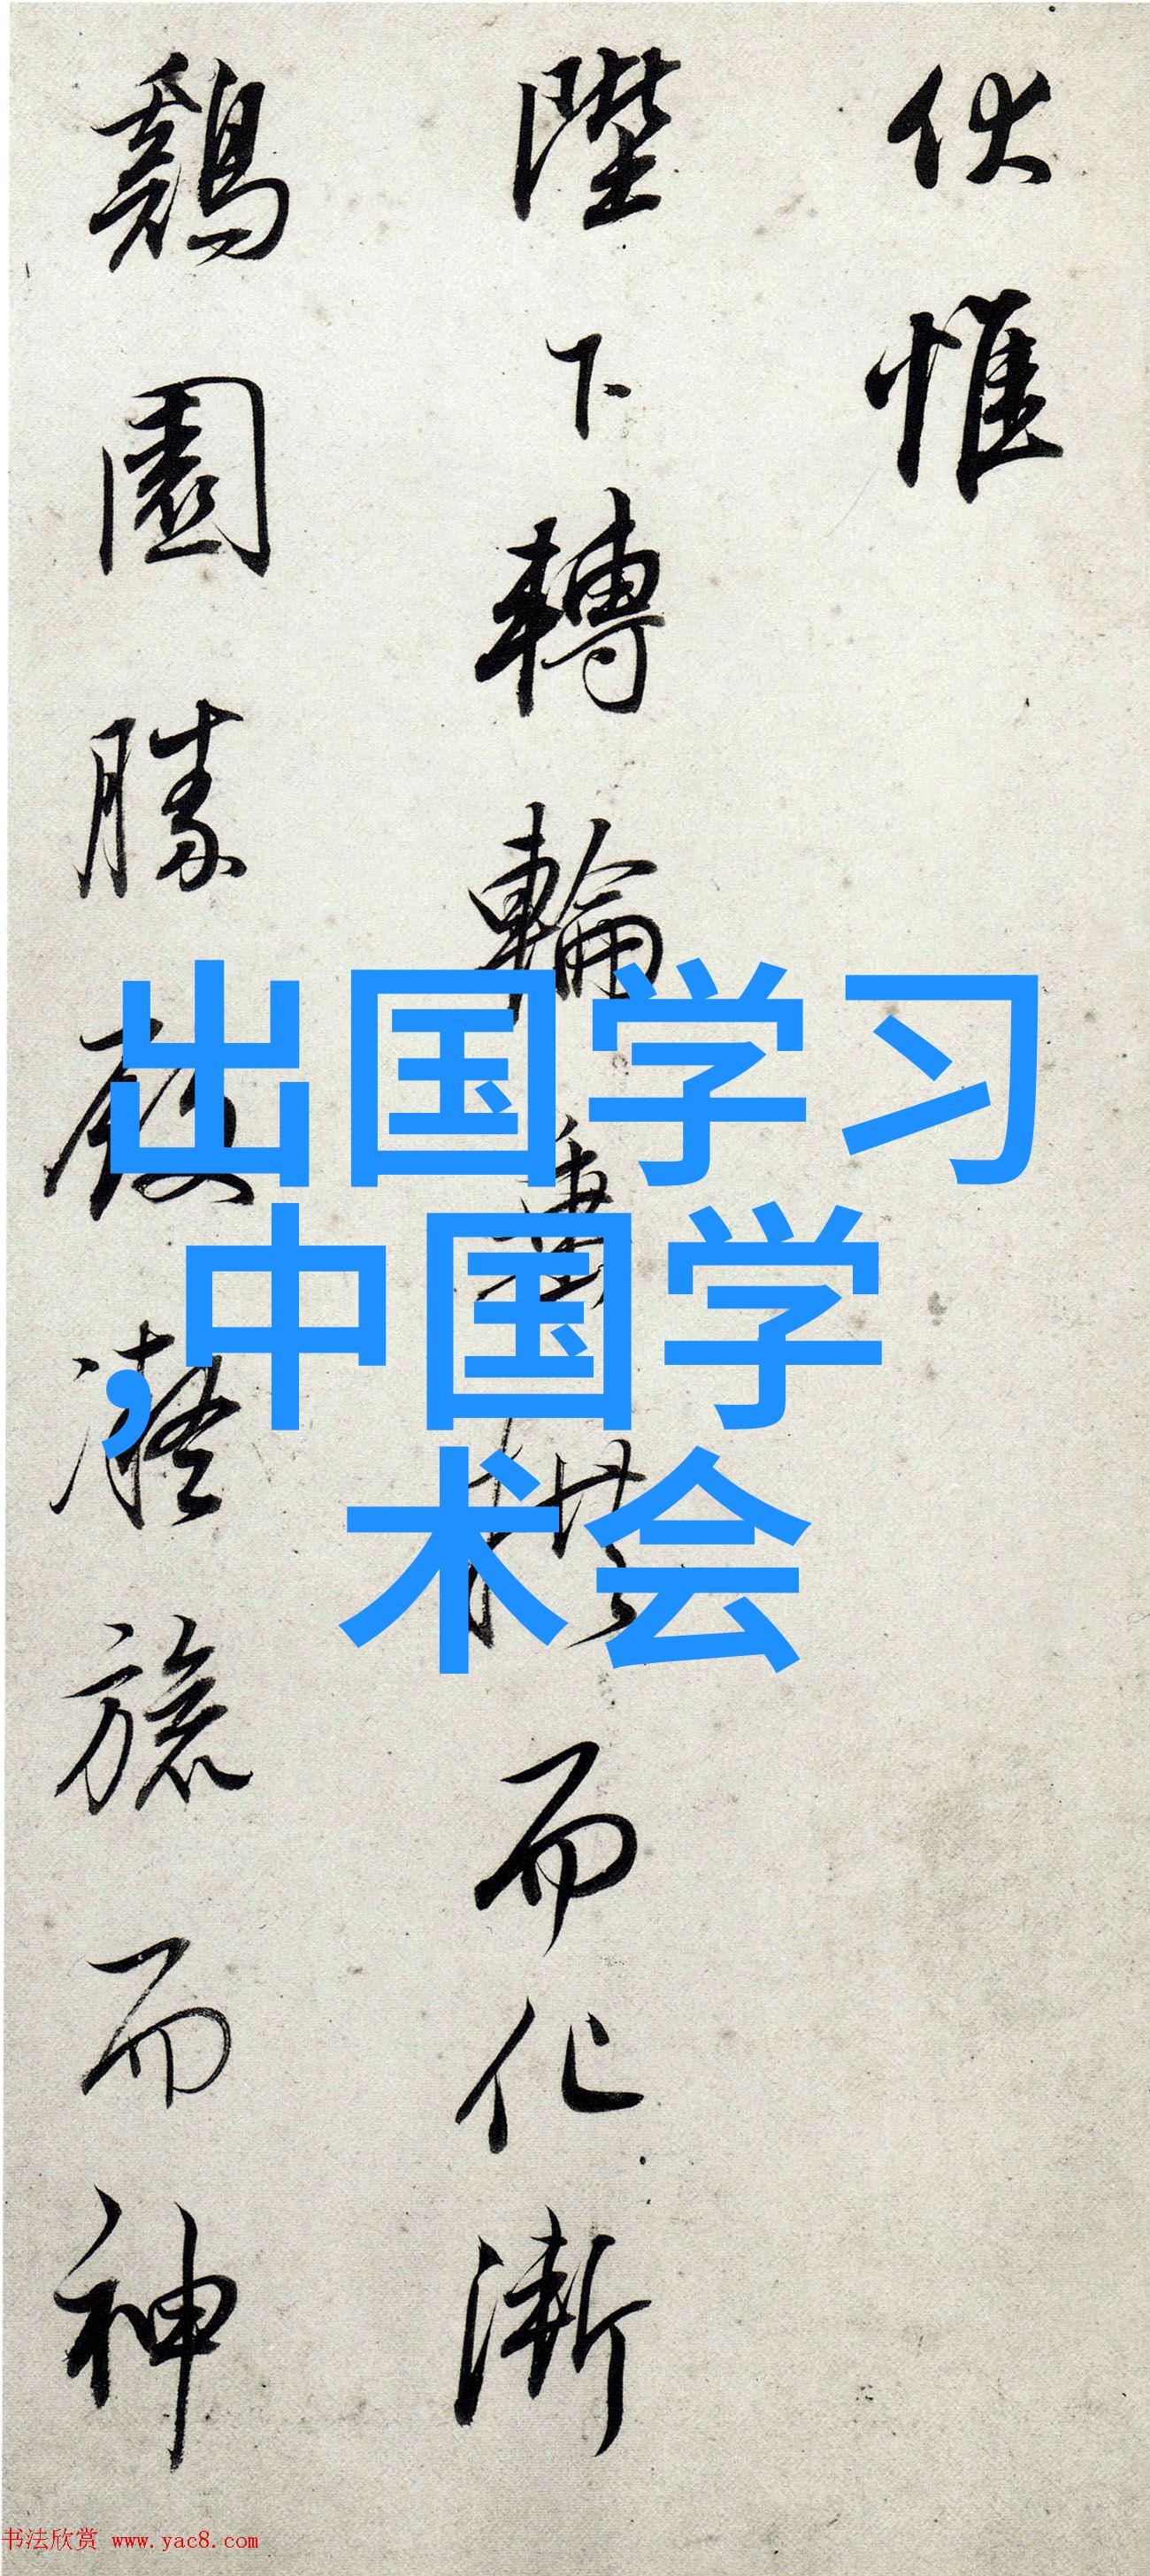 伏惟
陛下轉輪
而化漸
鷄園勝
旅而神
出国学习
,中国学
术会
书法欣赏 www.yac8.com